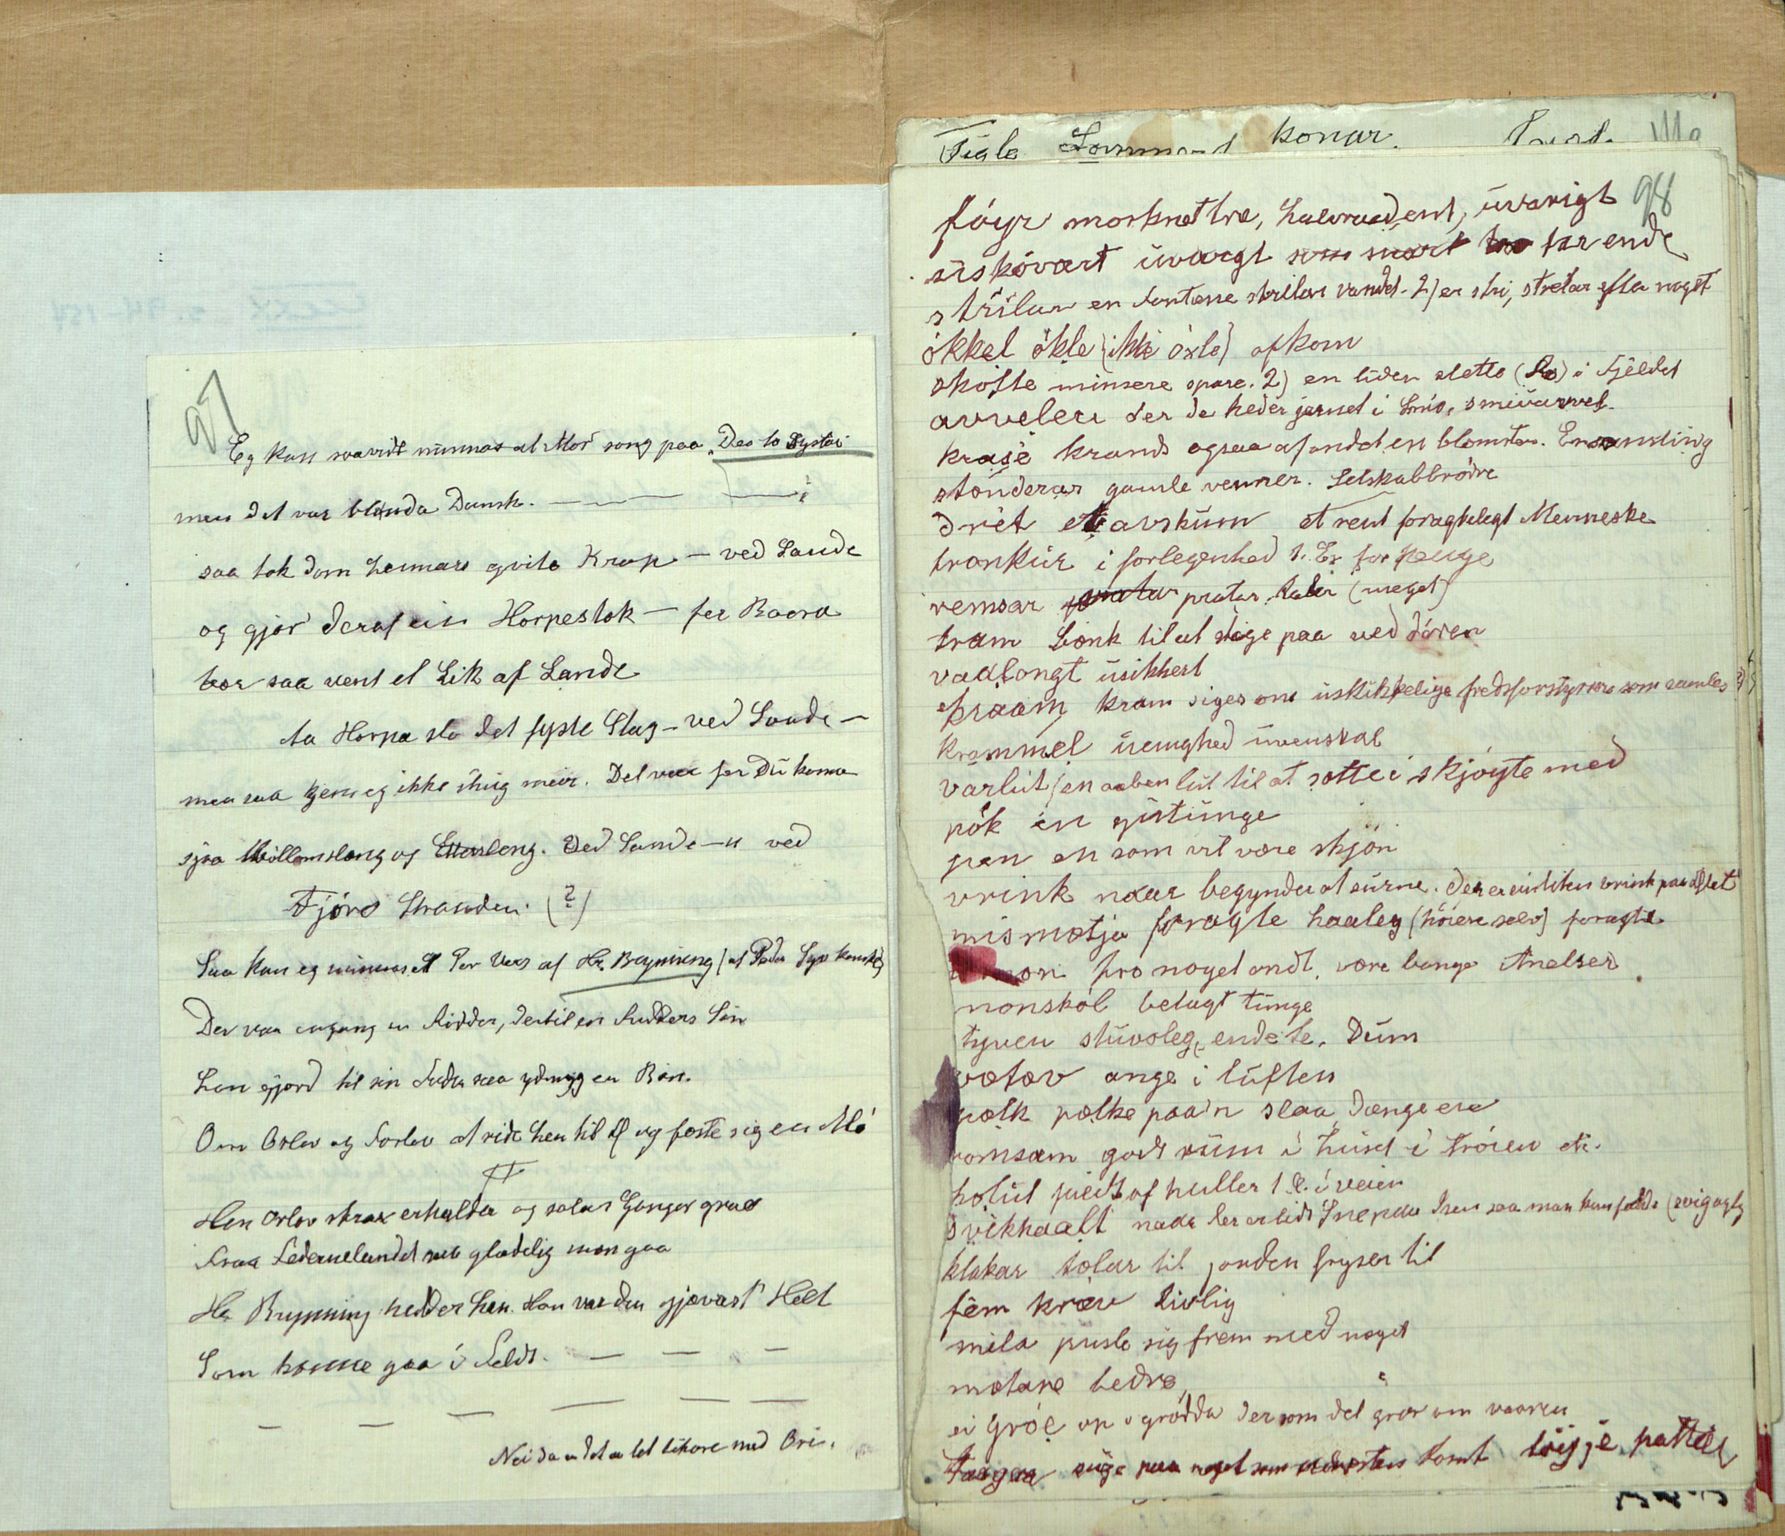 97
Eg kan saavidt minnas at Mor song paa „Deo to Systar
men det var blanda Dansk. — — — —
saa tok dom hennars qvite Krop — ved Sande
og gjør deraf ein Horpestok — fer Baara
bær saa vent et Lik af Lande
Aa Horpa slo det fyste Slag — ved Sande —
men saa kjem eg ikke ihug meir. Det var fer Du koma
sjaa Mollomslang og Ettersleng. Ved Sande — u ved
Fjóro Stranden. (?)
Saa kan eg minnas et Par Vers af Hr. Brynning (af Peder Syv kanske)
Der var engang en Ridder, dertil en Ridders Søn
han gjord til sin Fader saa ydmyg en Bøn.
Om Orlov og Forlov at ride hen til & og feste sig en Mó
Hen Orlov strax erholder og salar Ganger graa
Fraa Federnelandet saa gladelig mon gaa
Hr. Brynning hedder han. Han var den gjævast' Helt
Som kunne gaa i Feldt. — — —
— — — — — —
Nei da er det a let likare med Ori.
Konar.
98
fóyr morknettre, halvraadent, uvarigt
súskóvært uvargt som snart farende
strilar en Fontene strilar vandet. 2) er stri, stretar efter noget
ókkel ókle (ikke óxle) afkom
skófte minsere spare. 2) en liden slette (Flo) i Fjeldet
avveler der de heder jernet i Smio, smiuavvel.
krasé krands ogsaa af andet en blomster. En samling
stónderar gamle venner. Selskabbródre
drit et avskum et rent foragtelegt Menneske
trankur i forlegenhed f. Ex for penge
remsar prater taler (meget)
tram bænk til at stige paa ved dören
vadlangt usikkert
praam kram siges om uskikkelige fredsforstyrrere som samles
krammel uenighed uvenskab
varlut (en aaben lut til at sette i skjøyte med
pók en gutunge
pen en som vil være skjön
vrink naar begynder at surne. der er en liten vrink paa Øllet
mismætja foragte haaleg (höiere selv) foragte
fro noget ondt, være bange Anelser
monskól belagt tunge
tyven stuvsleg, endete. Dum
vætæv ange i luften
pælk pælke paa'n slaa dænge ere
romsam godt rum i huset i tróien etc.
holut fuldt af huller f. E. i veien
svikhaalt naar der er lidt Sne paa Isen saa man kan falde (svigagtig
klakar tælar til jorden fryser til
fèm kræv livlig
mila pusle sig frem med noget
mætare bedre
ei gróe op i grødda der som det grør om vaaren